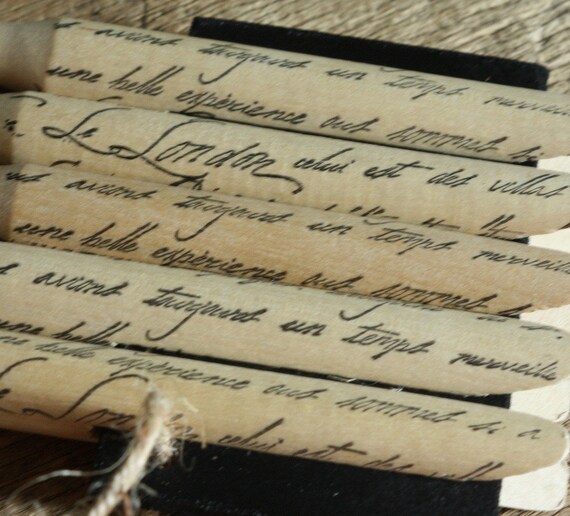 avons taujours un temps merveille
une belle expérience aut sommet si
Le London celui est des villas
avons taujours un temps merveille
une belle expérience aut sommet si
avons taujours un temps merveille
une belle
belle expérience aut sommet si a
celui est des vill